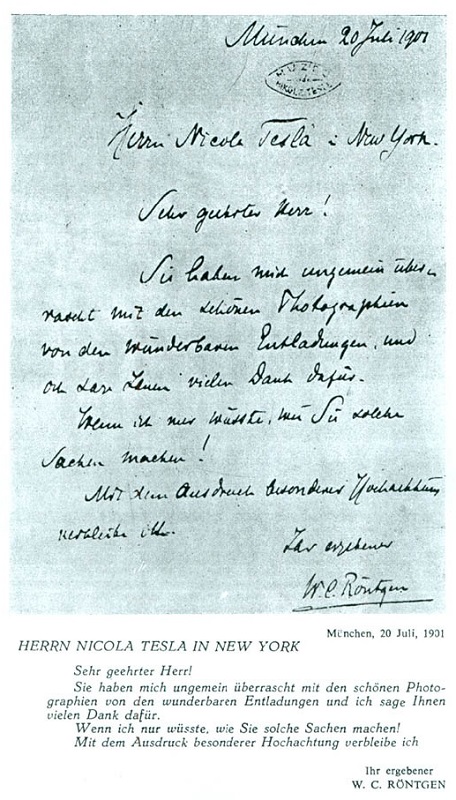 München 20 Juli 1901
MUZEJ
NIKOLE TESLE
Herrn Nicola Tesla i New York.
Sehr geehrter Herr!
Sie haben mich ungemein über-
rascht mit den schönen Photographien
von den wunderbaren Entladungen, und
ich sage Ihnen vielen Dank dafür.
Wenn ich nur wüsste, wie Sie solche
Sachen machen!
Mit dem Ausdruck besonderer Hochachtung
verbleibe ich.
Ihr ergebener
W. C. Röntgen
München, 20 Juli, 1901
HERRN NICOLA TESLA IN NEW YORK
Sehr geehrter Herr!
Sie haben mich ungemein überrascht mit den schönen Photo-
graphien von den wunderbaren Entladungen und ich sage Ihnen
vielen Dank dafür.
Wenn ich nur wüsste, wie Sie solche Sachen machen!
Mit dem Ausdruck besonderer Hochachtung verbleibe ich
Ihr ergebener
W. C. RÖNTGEN